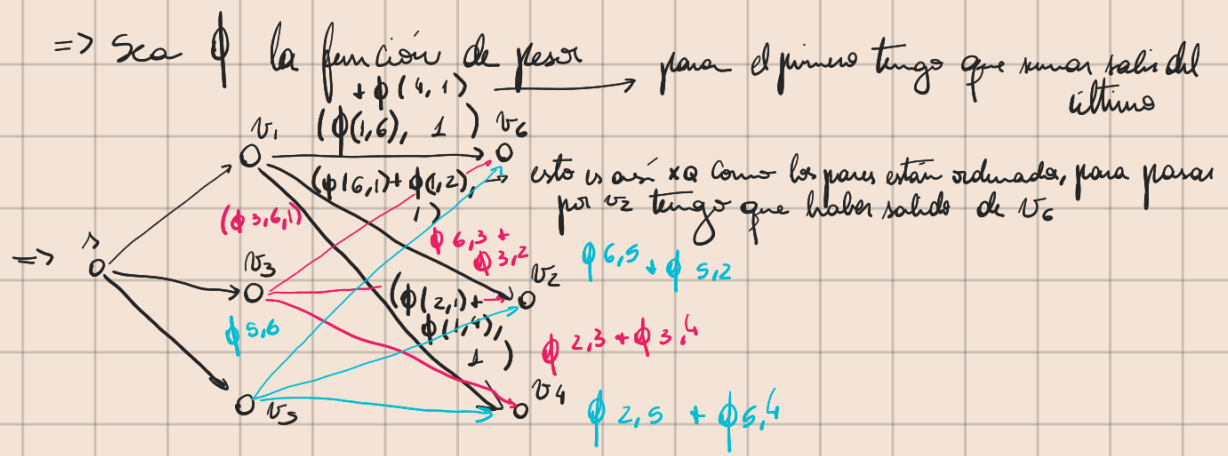 => Sea ϕ la función de pesos
para el primero tengo que sumar salir del
último
+ ϕ(4,1)
(ϕ(1,6), 1)
v₁
v₆
(ϕ(6,1)+ ϕ(1,2),
1)
esto es así xq como los pares están ordenados, para pasar
por v₂ tengo que haber salido de v₆
(ϕ 3,6,1)
ϕ 6,3 +
ϕ 3,2
s
=>
v₃
v₂
ϕ 6,5 + ϕ 5,2
(ϕ(2,1)+
ϕ(1,4),
1)
ϕ 5,6
ϕ 2,3 + ϕ 3,4
v₅
v₄
ϕ 2,5 + ϕ 5,4